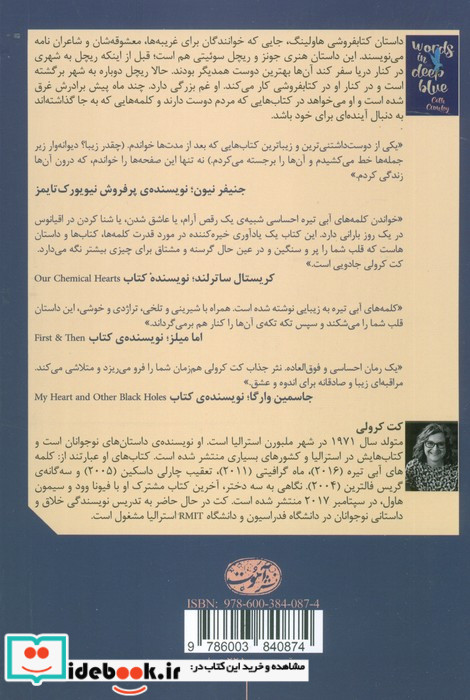 words
in
deep
blue
Cath
Crowley
داستان کتابفروشی هاولینگ، جایی که خوانندگان برای غریبه‌ها، معشوقه‌شان و شاعران نامه
می‌نویسند. این داستان هنری جونز و ریچل سوئیتی هم است؛ قبل از اینکه ریچل به شهری
در کنار دریا سفر کند آن‌ها بهترین دوست همدیگر بودند. حالا ریچل دوباره به شهر برگشته
است و در کنار او در کتابفروشی کار می‌کند. او غم بزرگی دارد. چند ماه پیش برادرش غرق
شده است و او می‌خواهد در کتاب‌هایی که مردم دوست دارند و کلمه‌هایی که به جا گذاشته‌اند
به دنبال آینده‌ای برای خود باشد.
«یکی از دوست‌داشتنی‌ترین و زیباترین کتاب‌هایی که بعد از مدت‌ها خواندم. (چقدر زیبا؟ دیوانه‌وار زیر
جمله‌ها خط می‌کشیدم و آن‌ها را برجسته می‌کردم.) نه تنها این صفحه‌ها را خواندم، که درون آن‌ها
زندگی کردم.»
جنیفر نیون؛ نویسنده‌ی پرفروش نیویورک‌تایمز
«خواندن کلمه‌های آبی تیره احساسی شبیه‌ی یک رقص آرام، یا عاشق شدن، یا شنا کردن در اقیانوس
در یک روز بارانی دارد. این کتاب یک یادآوری خیره‌کننده در مورد قدرت کلمه‌ها، کتاب‌ها و داستان
هاست که قلب شما را پر و سنگین و در عین حال گرسنه و مشتاق برای چیزی بیشتر نگه می‌دارد.
کت کرولی جادویی است.»
کریستال ساترلند؛ نویسنده کتاب Our Chemical Hearts
«کلمه‌های آبی تیره به زیبایی نوشته شده است. همراه با شیرینی و تلخی، تراژدی و خوشی، این داستان
قلب شما را می‌شکند و سپس تکه تکه‌ی آن‌ها را کنار هم برمی‌گرداند.»
اما میلز؛ نویسنده‌ی کتاب First & Then
«یک رمان احساسی و فوق‌العاده. نثر جذاب کت کرولی همزمان شما را فرو می‌ریزد و متلاشی می‌کند.
مراقبه‌ای زیبا و صادقانه برای اندوه و عشق.»
جاسمین وارگا؛ نویسنده‌ی کتاب My Heart and Other Black Holes
کت کرولی
متولد سال ۱۹۷۱ در شهر ملبورن استرالیا است. او نویسنده‌ی داستان‌های نوجوانان است و
کتاب‌هایش در استرالیا و کشورهای بسیاری منتشر شده است. کتاب‌های او عبارتند از: کلمه
های آبی تیره (۲۰۱۶)، ماه گرافیتی (۲۰۱۱)، تعقیب چارلی داسکین (۲۰۰۵) و سه‌گانه‌ی
گریس فالترین (۲۰۰۴). نگاهی به سه دختر، آخرین کتاب مشترک او با فیونا وود و سیمون
هاول، در سپتامبر ۲۰۱۷ منتشر شده است. کت در حال حاضر به تدریس نویسندگی خلاق و
داستانی نوجوانان در دانشگاه فدراسیون و دانشگاه RMIT استرالیا مشغول است.
ISBN: 978-600-384-087-4
9 786003 840874
iidebook.ir
مشاهده و خرید این کتاب در: